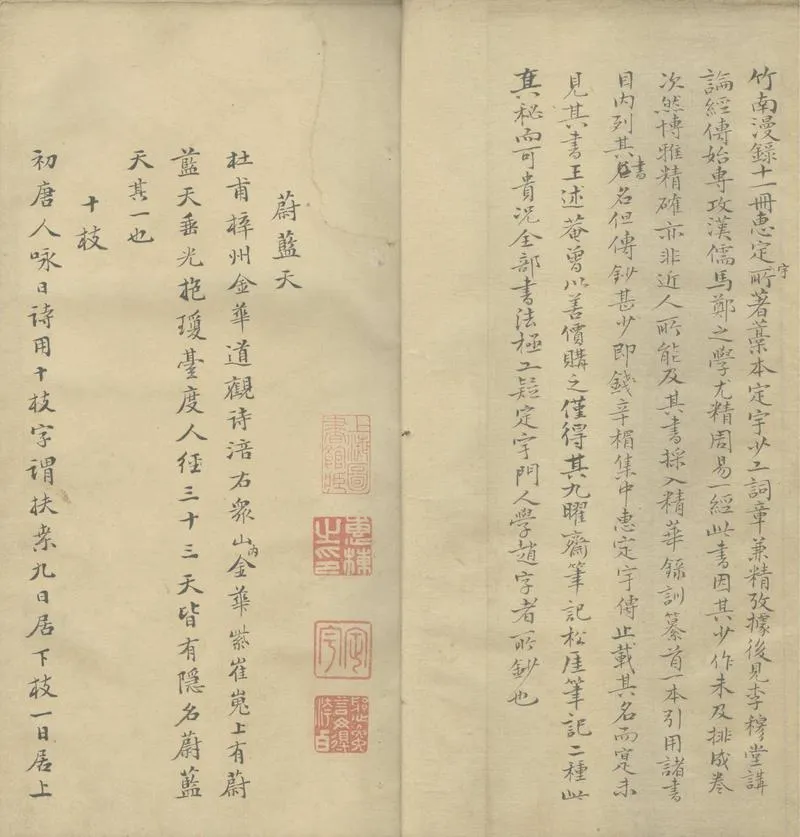 竹南漫錄十一冊惠定宇所著藁本定宇少工詞章兼精攷據後見李穆堂講
論經傳始專攻漢儒馬鄭之學尤精周易一經此書因其少作未及排成卷
次然博雅精確亦非近人所能及其書採入精華錄訓纂首一本引用諸書
目內列其書名但傳鈔甚少即錢辛楣集中惠定宇傳止載其名而寔未
見其書王述菴曾以善價購之僅得其九曜齋筆記松厓筆記二種此
真秘而可貴況全部書法極工疑定宇門人學趙字者所鈔也
蔚藍天
杜甫梓州金華道觀詩涪右眾山內金華紫崔嵬上有蔚
藍天垂光抱瓊臺度人徑三十三天皆有隱名蔚藍
天其一也
十枝
初唐人咏日詩用十枝字謂扶桒九日居下枝一日居上
上海圖書館藏
惠棟之印
定宇